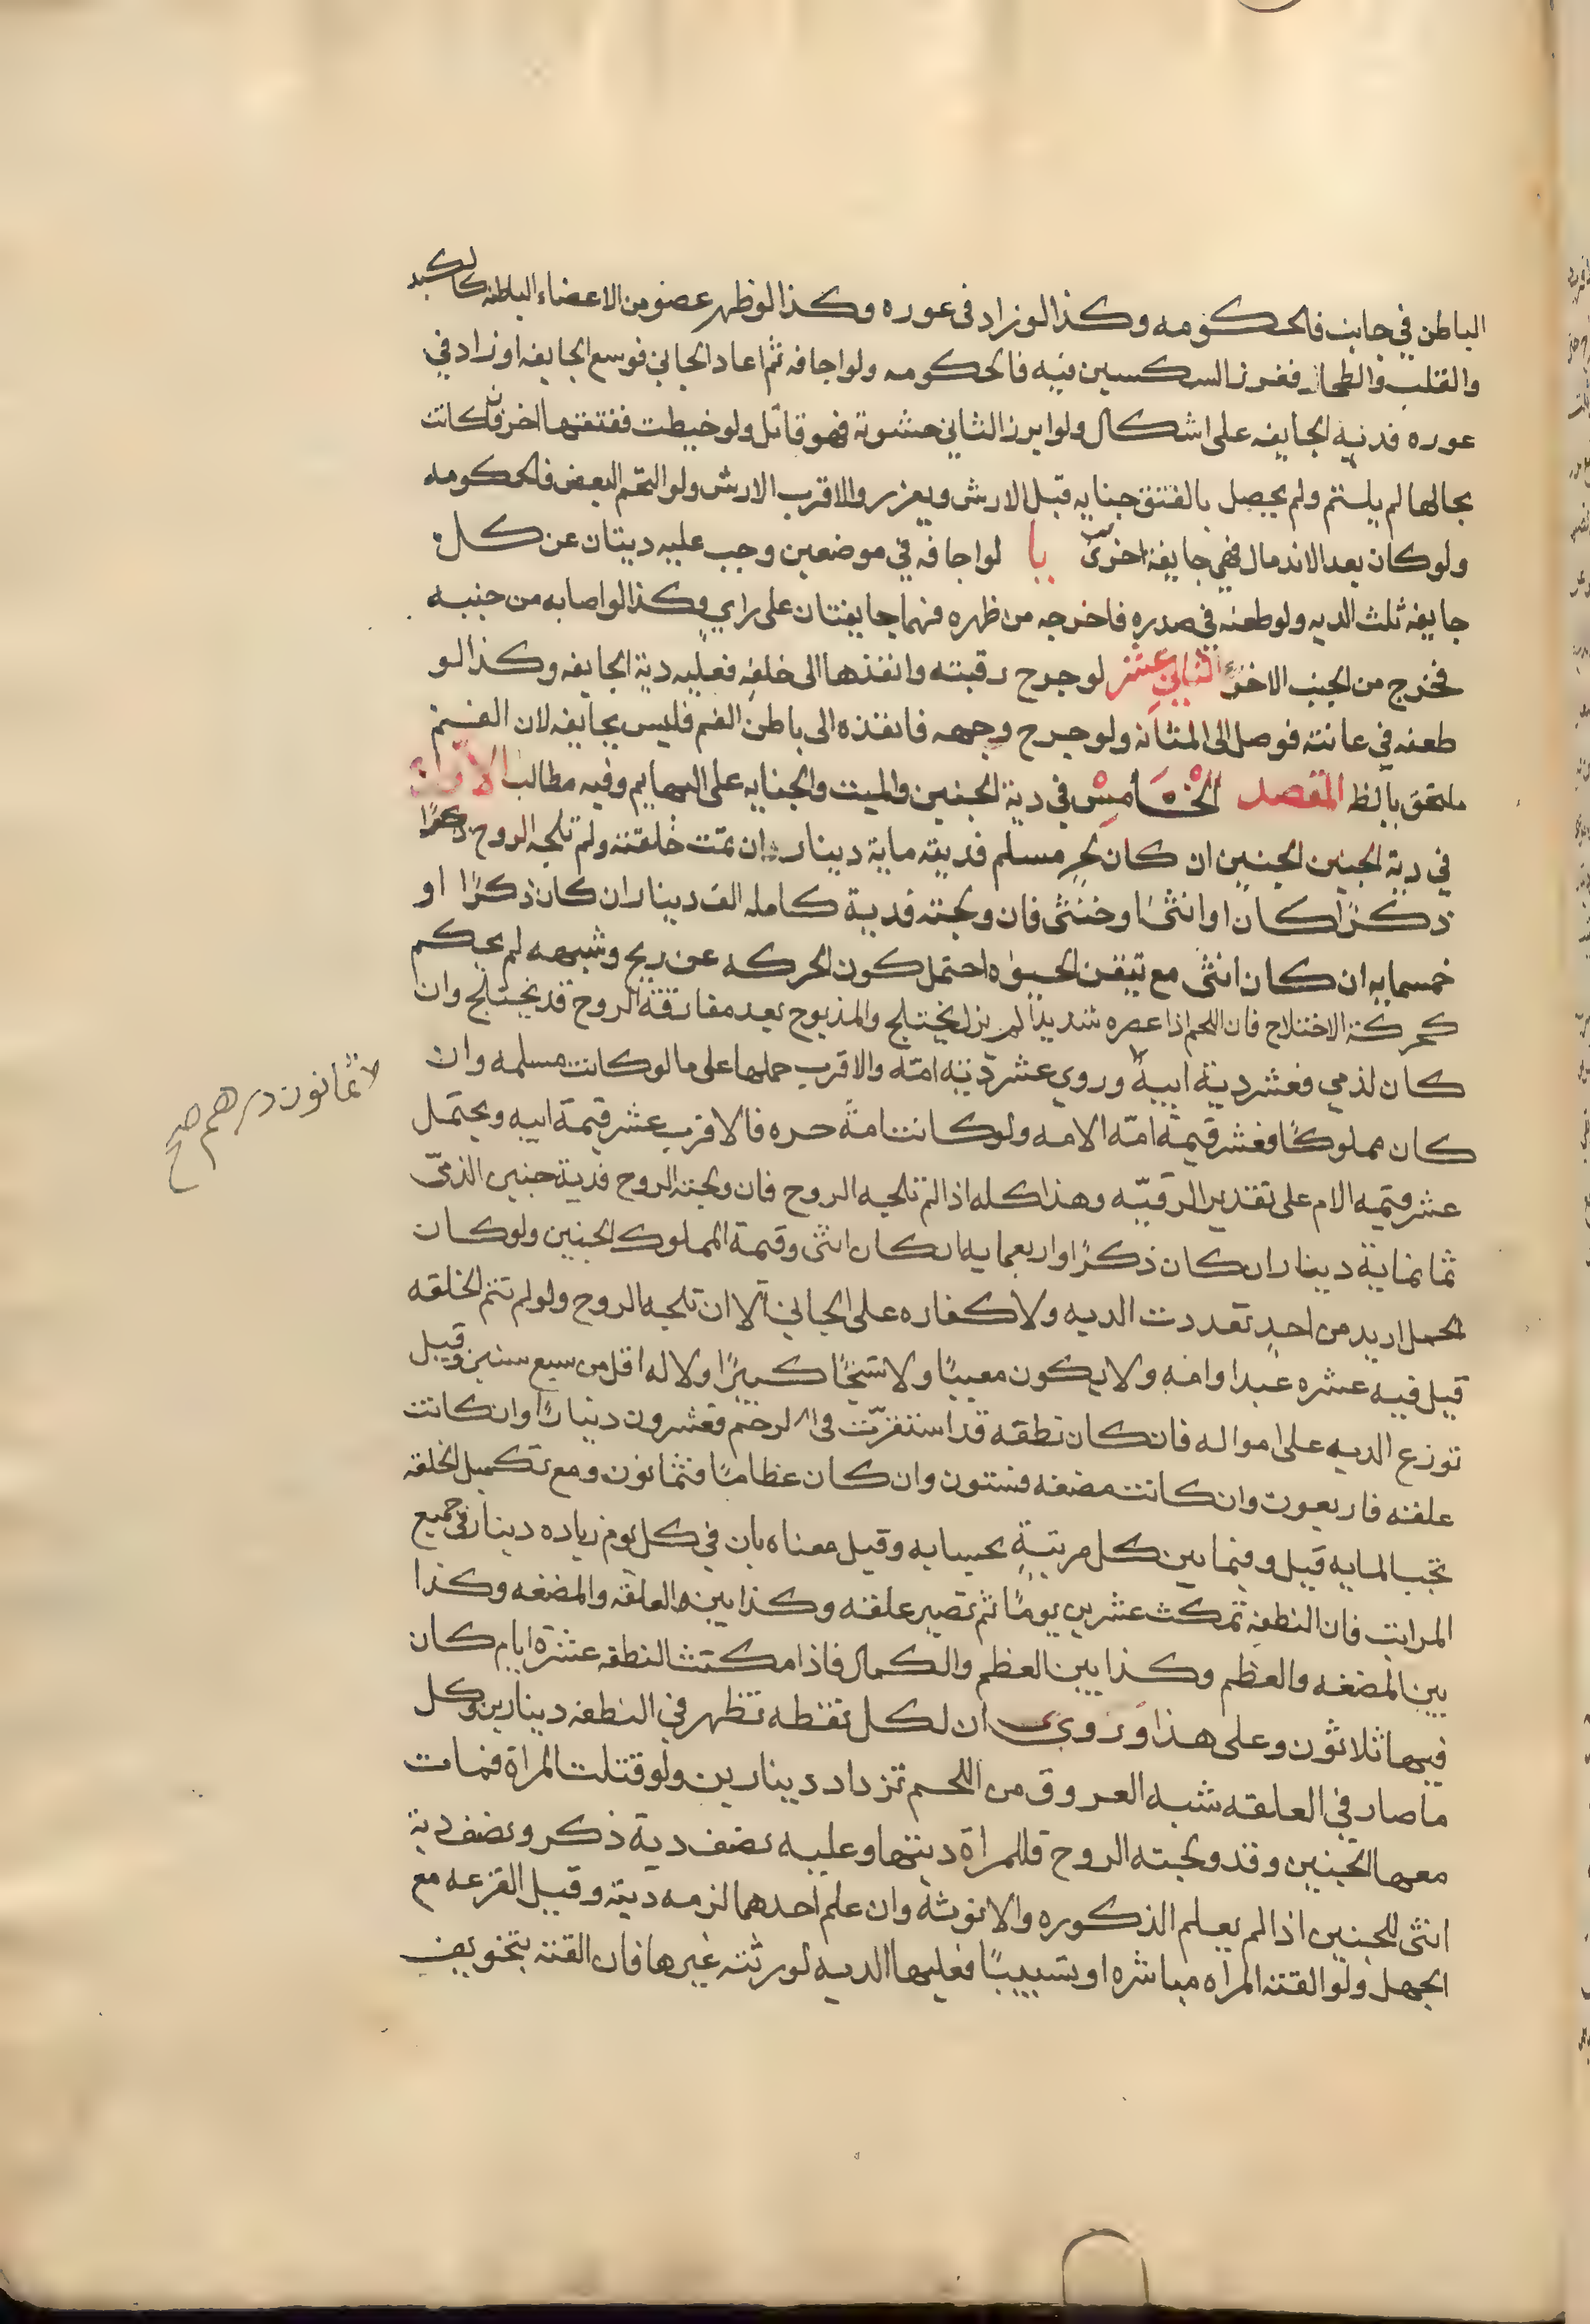 الباطن في جانب فالحكومه وكذا لو زاد في عوره وكذا لو ظهر عضو من الاعضاء الباطنه كالكبد
والقلب والطحال ففرز السكسين فيه فالحكومه ولو اجافه ثم اعاد الجاني فوسع الجايفه او زاد في
عوره فديه الجايفه على اشكال ولو ابرز الثاني حشوته فهو قاتل ولو خيطت ففتقها اخر فان كانت
بحالها لم يلتئم ولم يحصل بالفتق جنايه قيل الارش ويعزر والاقرب الارش ولو التحم البعض فالحكومه
ولو كان بعد الاندمال فهي جايفة اخرى يا لو اجافه في موضعين وجب عليه ديتان عن كل
جايفه ثلث الديه ولو طعنه في صدره فاخرجه من ظهره فهما جايفتان على راي وكذا لو اصابه من جنبه
فخرج من الجنب الاخر الثاني عشر لو جرح رقبته وانفذها الى خلفه فعليه دية الجايفه وكذا لو
طعنه في عانته فوصل الى المثانه ولو جرح وجهه فانفذه الى باطن الفم فليس بجايفه لان الفم
ملحق بالظ المقصد الخامس في دية الجنين والميت والجنايه على البهايم وفيه مطالب الاول
في دية الجنين الجنين ان كان لحر مسلم فديته ماية دينار ان تمت خلقته ولم تلجه الروح ذكرًا
ذكرًا كان او انثى او خنثى فان ولجته فدية كامله الف دينار ان كان ذكرًا او
خمسمايه ان كان انثى مع تيقن الحيوه احتمل كون الحركه عن ريح وشبهه لم يحكم
كحركة الاختلاج فان اللحم اذا عصره شديدًا لم يزل يختلج والمذبوح بعد مفارقة الروح قد يختلج وان
كان لذمي فعشر دية ابيه وروي عشر دية امه والاقرب حملها على ما لو كانت مسلمه وان
كان مملوكًا فعشر قيمة امه الامه ولو كانت امة حره فالاقرب عشر قيمة ابيه ويحتمل
عشر قيمه الام على تقدير الرقيّه وهذا كله اذا لم تلجه الروح فان ولجته الروح فدية جنين الذميّ
ثمانماية دينار ان كان ذكرًا واربعمايه ان كان انثى وقيمة المملوك الجنين ولو كان
الحمل ازيد من احد تعددت الديه ولا كفاره على الجاني الا ان تلجه الروح ولو لم تتم الخلقه
قيل فيه عشره عبد او امه ولا يكون معيبًا ولا شيخًا كبيرًا ولا له اقل من سبع سنين وقيل
توزع الديه على احواله فان كان نطفه قد استقرّت في الرحم فعشرون دينارًا وان كانت
علقته فاربعون وان كانت مضغه فستون وان كان عظامًا فثمانون ومع تكميل الخلقه
تجب المايه قيل وفيما بين كل مرتبة بحسابه وقيل معناه بان في كل يوم زياده دينار في جميع
المراتب فان النطفه تمكث عشرين يومًا ثم تصير علقته وكذا بين العلقه والمضغه وكذا
بين المضغه والعظم وكذا بين العظم والكمال فاذا مكثت النطفه عشرة ايام كان
فيها ثلاثون وعلى هذا وروى ان لكل نقطه تظهر في النطفه دينارين وكل
ما صار في العلقه شبه العروق من اللحم تزداد دينارين ولو قتلت المراة فمات
معها الجنين وقد ولجته الروح فللمراة ديتها وعليه نصف دية ذكر ونصف دية
انثى للجنين اذا لم يعلم الذكوره والانوثة وان علم احدهما لزمه ديته وقيل القرعه مع
الجهل ولو القته المراه مباشره او تسبيبًا فعليها الديه لورثته غيرها فان القته بتخويف
لا ثمانون درهم صح